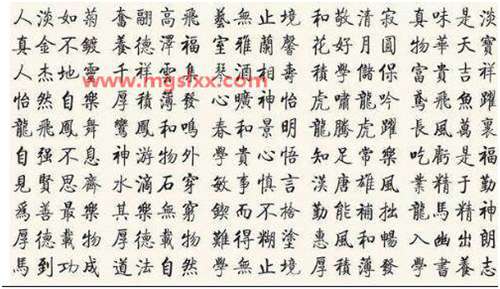 人淡如菊 奮翮高飛 藝無止境 和敬清寂 真味是淡
真金不鍍 養德澤福 室雅蘭馨 花好月圓 物華天寶
人杰地靈 千祥雲集 富貴吉祥
www.mgsfxx.com
怡然自樂 厚積薄發 心曠神怡 虎嘯龍吟 鳶飛魚躍
龍飛鳳舞 鸞鳳和鳴 春和景明 龍騰虎躍 長風萬裏
自强不息 神游物外 學貴心悟 知足常樂 吃虧是福
見賢思齊 水滴石穿 敏事慎言 漢唐雄風 業精于勤
爲善最樂 其樂無窮 鍥而不捨 勤能補拙 龍馬精神
厚德載物 厚德載物 難得糊塗 惠風和暢 入幽出朗
馬到功成 道法自然 學無止境 厚積薄發 學書養志